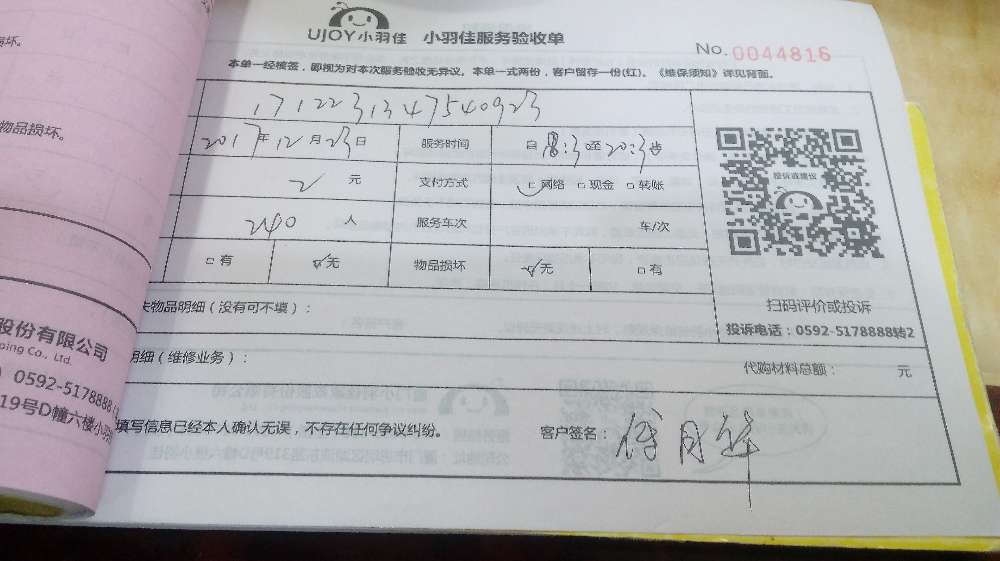 UJOY小羽佳 小羽佳服务验收单
No. 0044816
本单一经核签，即视为对本次服务验收无异议。本单一式两份，客户留存一份(红)。《维保须知》详见背面。
1712231347540923
2017年12月23日 服务时间 自 至20:3
2 元 支付方式 网络 现金 转账
240 人 服务车次 车/次
有 无 物品损坏 无 有
物品明细（没有可不填）：
明细（维修业务）：
代购材料总额： 元
填写信息已经本人确认无误，不存在任何争议纠纷。 客户签名：
投诉或建议
扫码评价或投诉
投诉电话：0592-5178888转2
坏。
物品损坏。
股份有限公司
ping Co., Ltd.
0592-5178888
19号D幢六楼小羽